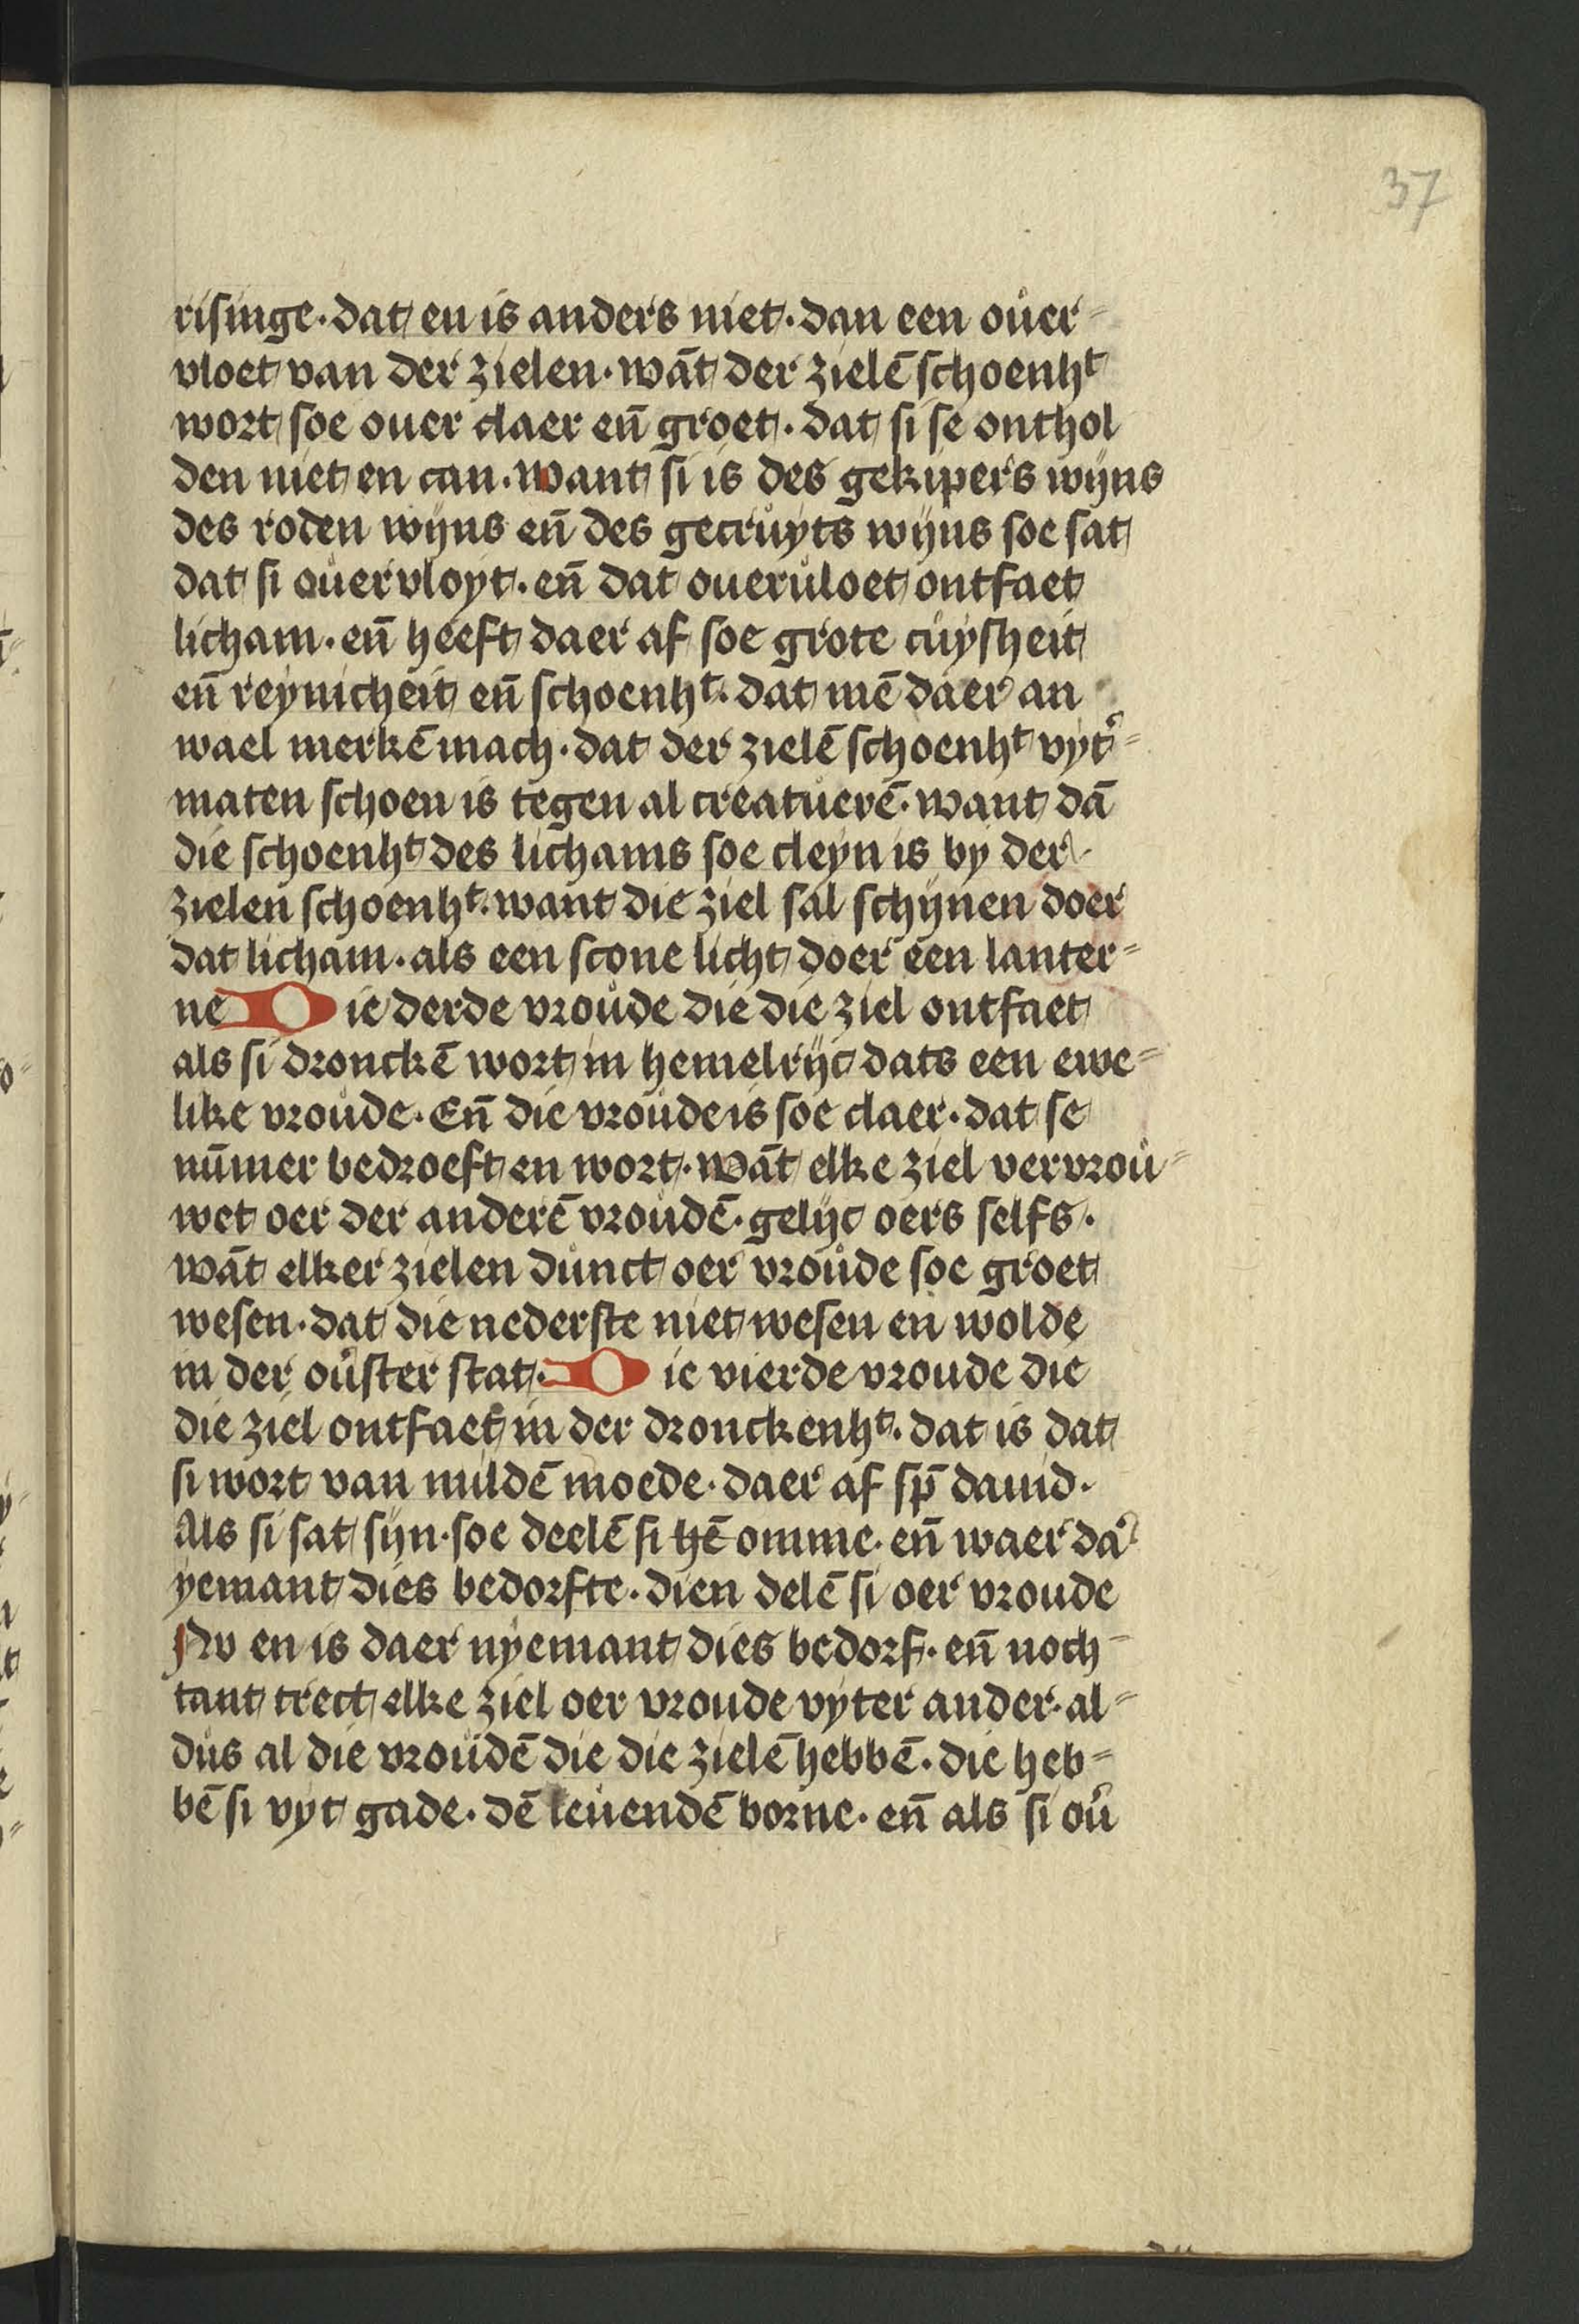 37
risinge · dat en is anders niet · dan een ouer-
vloet van der zielen · wāt der zielē schoenhᵗ
wort soe ouer claer eñ groet · dat si se onthol
den niet en can · want si is des gekipers wijns
des roden wijns eñ des gecruyts wijns soe sat
dat si ouervloyt · eñ dat oueruloet ontfaet
licham · eñ heeft daer af soe grote cuysheit
eñ reynicheit eñ schoenhᵗ · dat mē daer an
wael merkē mach · dat der zielē schoenhᵗ vytʳ-
maten schoen is tegen al creatuerē · want dā
die schoenhᵗ des lichams soe cleyn is by der
zielen schoenhᵗ · want die ziel sal schijnen doer
dat licham · als een scone licht doer een lanter-
ne Die derde vroude die die ziel ontfaet
als si dronckē wort in hemelrijc dats een ewe-
like vroude · Eñ die vroude is soe claer · dat se
nūmer bedroeft en wort · wāt elke ziel vervrou-
wet oer der anderē vroudē · gelijc oers selfs ·
wāt elker zielen dunct oer vroude soe groet
wesen · dat die nederste niet wesen en wolde
in der ouster stat · Die vierde vroude die
die ziel ontfaet in der dronckenhᵗ · dat is dat
si wort van mildē moede · daer af sp̄ dauid ·
Als si sat sijn · soe deelē si hē omme · eñ waer daʳ
yemant dies bedorfte · dien delē si oer vroude
Nv en is daer nyemant dies bedorf · eñ noch-
tant trect elke ziel oer vroude vyter ander · al-
dus al die vroudē die die zielē hebbē · die heb-
bē si vyt gade · dē leuendē borne · eñ als si ou